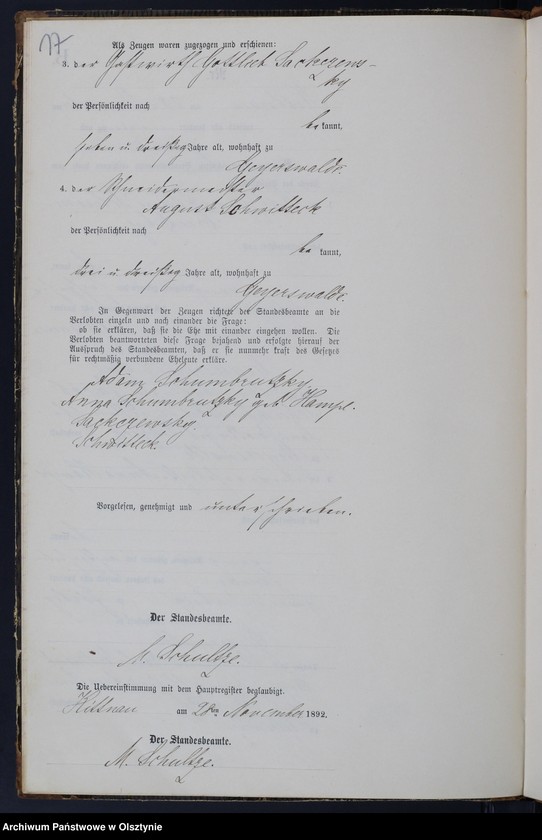 17
Als Zeugen waren zugezogen und erschienen:
3. der Gastwirth Gottlieb Sackczews-
ky
der Persönlichkeit nach
be kannt,
sieben u. dreißig Jahre alt, wohnhaft zu
Geyerswalde.
4. der Schneidermeister
August Schwitteck
der Persönlichkeit nach
be kannt,
drei u. dreißig Jahre alt, wohnhaft zu
Geyerswalde.
In Gegenwart der Zeugen richtete der Standesbeamte an die
Verlobten einzeln und nach einander die Frage:
ob sie erklären, daß sie die Ehe mit einander eingehen wollen. Die
Verlobten beantworteten diese Frage bejahend und erfolgte hierauf der
Ausspruch des Standesbeamten, daß er sie nunmehr kraft des Gesetzes
für rechtmäßig verbundene Eheleute erkläre.
Adam Schumbrutzky
Anna Schumbrutzky geb. Hampel.
Sackczewsky
Schwitteck.
Vorgelesen, genehmigt und unterschrieben.
Der Standesbeamte.
M. Schultze.
Die Uebereinstimmung mit dem Hauptregister beglaubigt.
Kittnau am 28ten November 1892.
Der Standesbeamte.
M. Schultze.
Archiwum Państwowe w Olsztynie